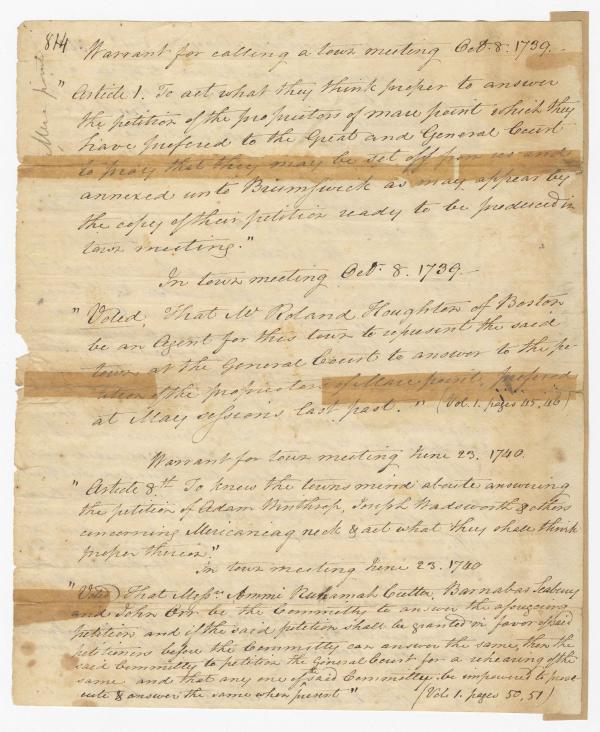 814
Mare point
Warrant for calling a town meeting Oct. 8. 1739.
"Article 1. To act what they think proper to answer
the petition of the proprietors of mare point which they
have prefered to the Great and General Court
to pray that they may be set off from us and
annexed unto Brumswick as may appear by
the copy of their petition ready to be produced in
town meeting."
In town meeting Oct. 8. 1739.
"Voted, That Mr Roland Houghton of Boston
be an Agent for this town to represent the said
town at the General Court to answer to the pe-
tition of the proprietors of Mare point, prefered
at May sessions last past." (Vol. 1. pages 45, 46)
Warrant for town meeting June 23. 1740.
"Article 8th To know the towns mind aboute answering
the petition of Adam Winthrop, Joseph Wadsworth & others
concerning Mericaneag neck & act what they shall think
proper thereon."
In town meeting June 23. 1740
"Voted, That Messrs Ammi Ruhamah Cutter, Barnabas Seabury
and John Orr be the Committy to answer the aforegoing
petition and if the said petition shall be granted in favor of said
petitioners before the Committy can answer the same, then the
said Committy to petition the General Court for a rehearing of the
same and that any one of said Committy be impowered to prose-
cute & answer the same when present" (Vol. 1. pages 50, 51)